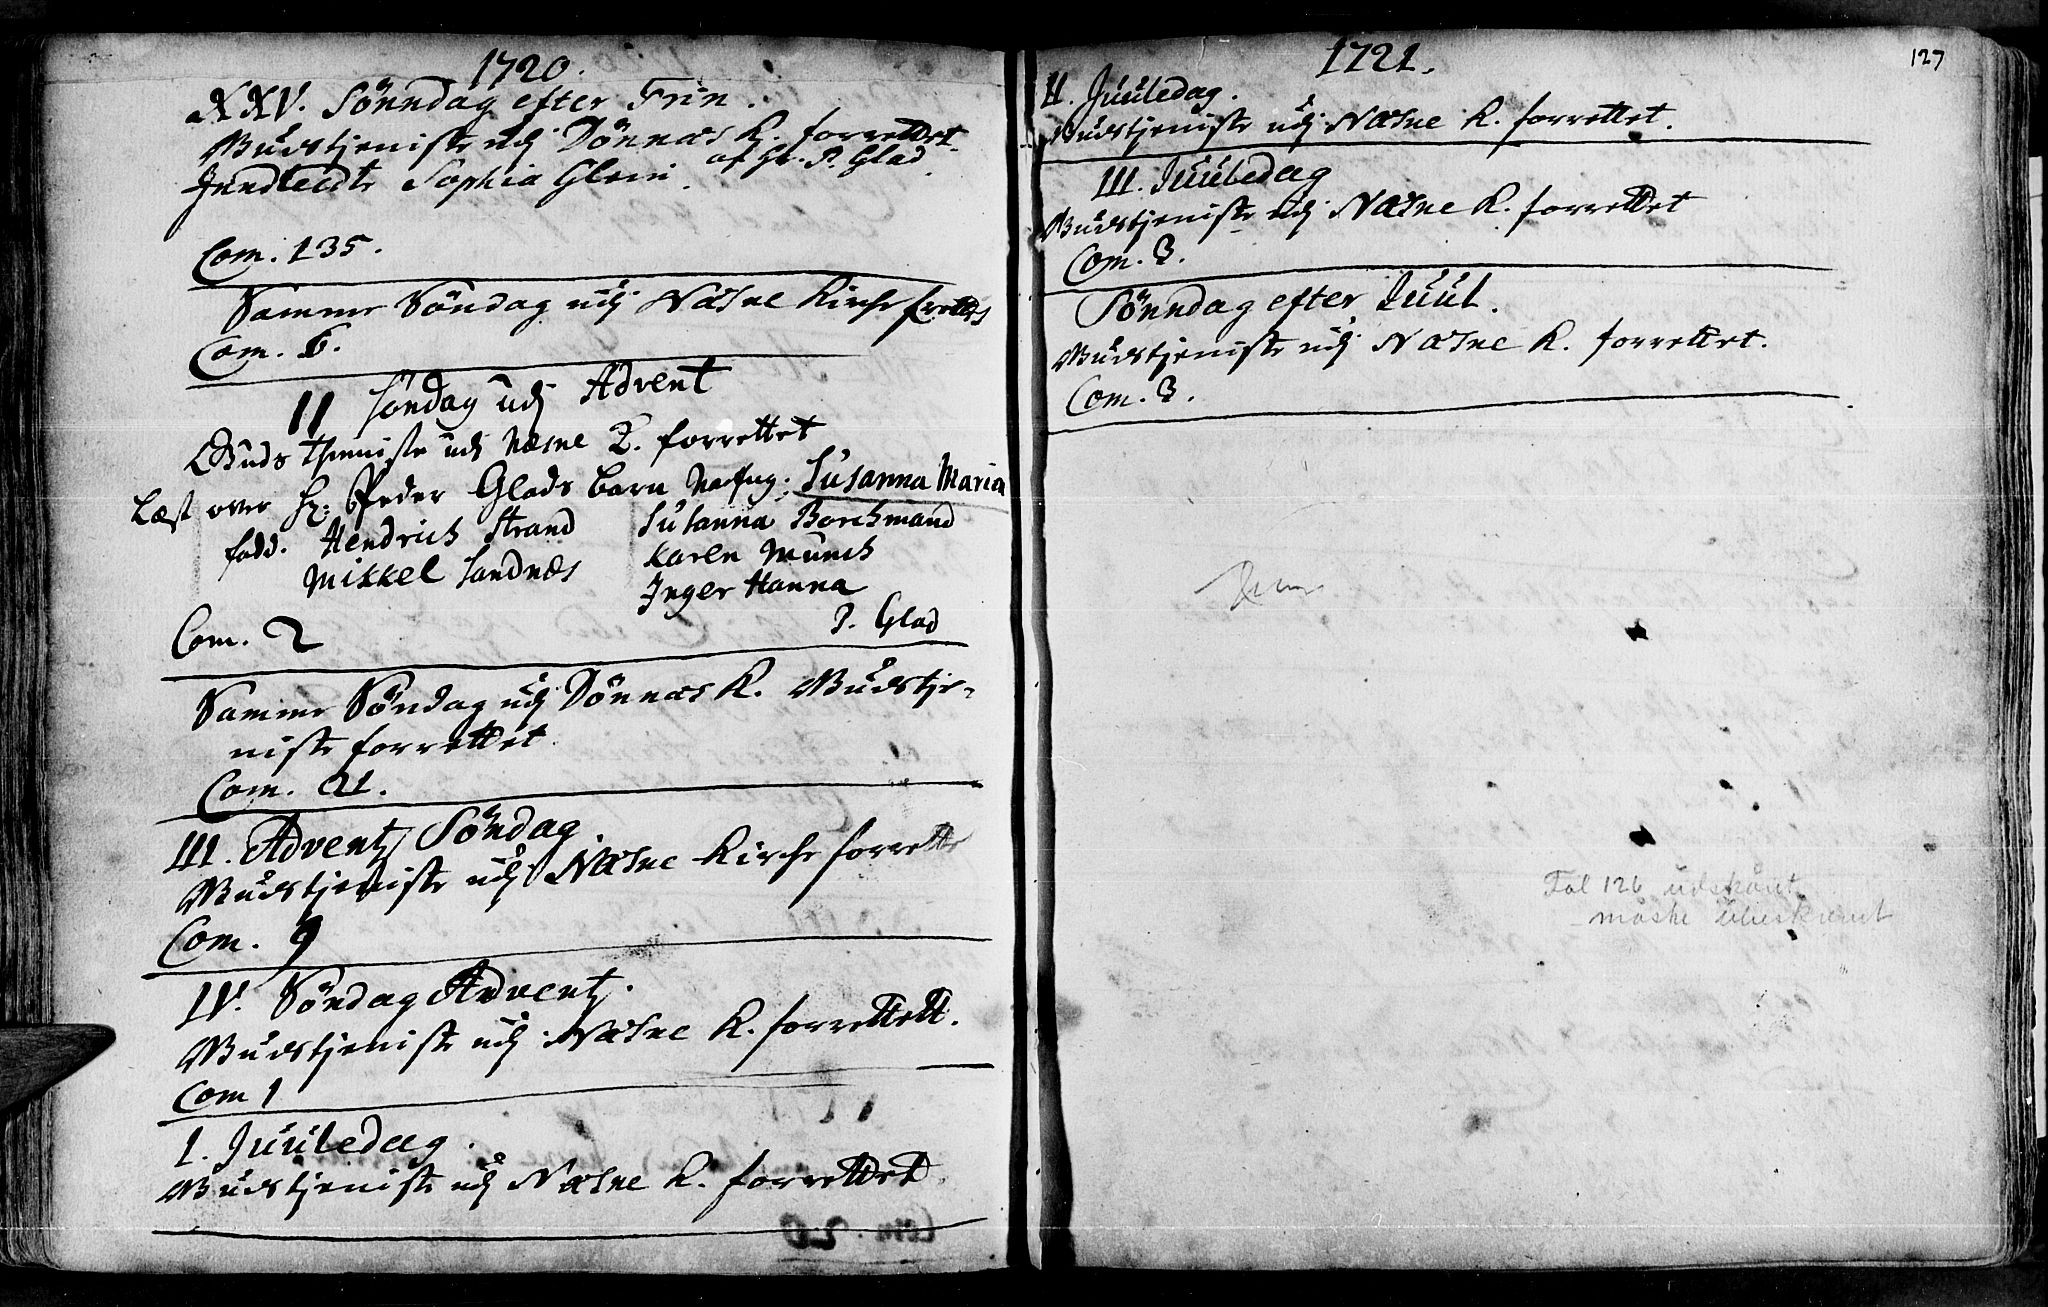 1720.
XXV. Sönndag efter Trin.
Gudstjeniste udj Dönnæs K. forrettet
af Hr. P. Glad.
Jndledte Sophia Glein.
Com. 135.
Samme Söndag udj Næsne Kirche
Com. 6.
II Söndag udj Advent
Guds thieniste udj Næsne K. forrettet
Læst over Hr: Peder Glads barn Nafng: Susanna Maria
fadd. Hendrich Strand Susanna Borchmand
Mikkel Sandnæs Karen Munch
Inger Hanna
P. Glad
Com. 2
Samme Söndag udj Dönnæs K. Gudstje-
niste forrettet
Com. 21.
III. Advents Söndag.
Gudstjeniste udj Næsne Kirche forrette
Com. 9
IV. Söndag Advent.
Gudstjeniste udj Næsne K. forrettett.
Com 1
I. Juuledag.
Gudstjeniste udj Næsne K. forrettet
1721.
127
II. Juuledag.
Gudstjeniste udj Næsne K. forrettet.
III. Juuledag
Gudstjeniste udj Næsne K. forrettet
Com. 3.
Sönndag efter Juul.
Gudstjeniste udj Næsne K. forrettet.
Com. 3.
Fol 126 udskåret
måske ubeskrevet